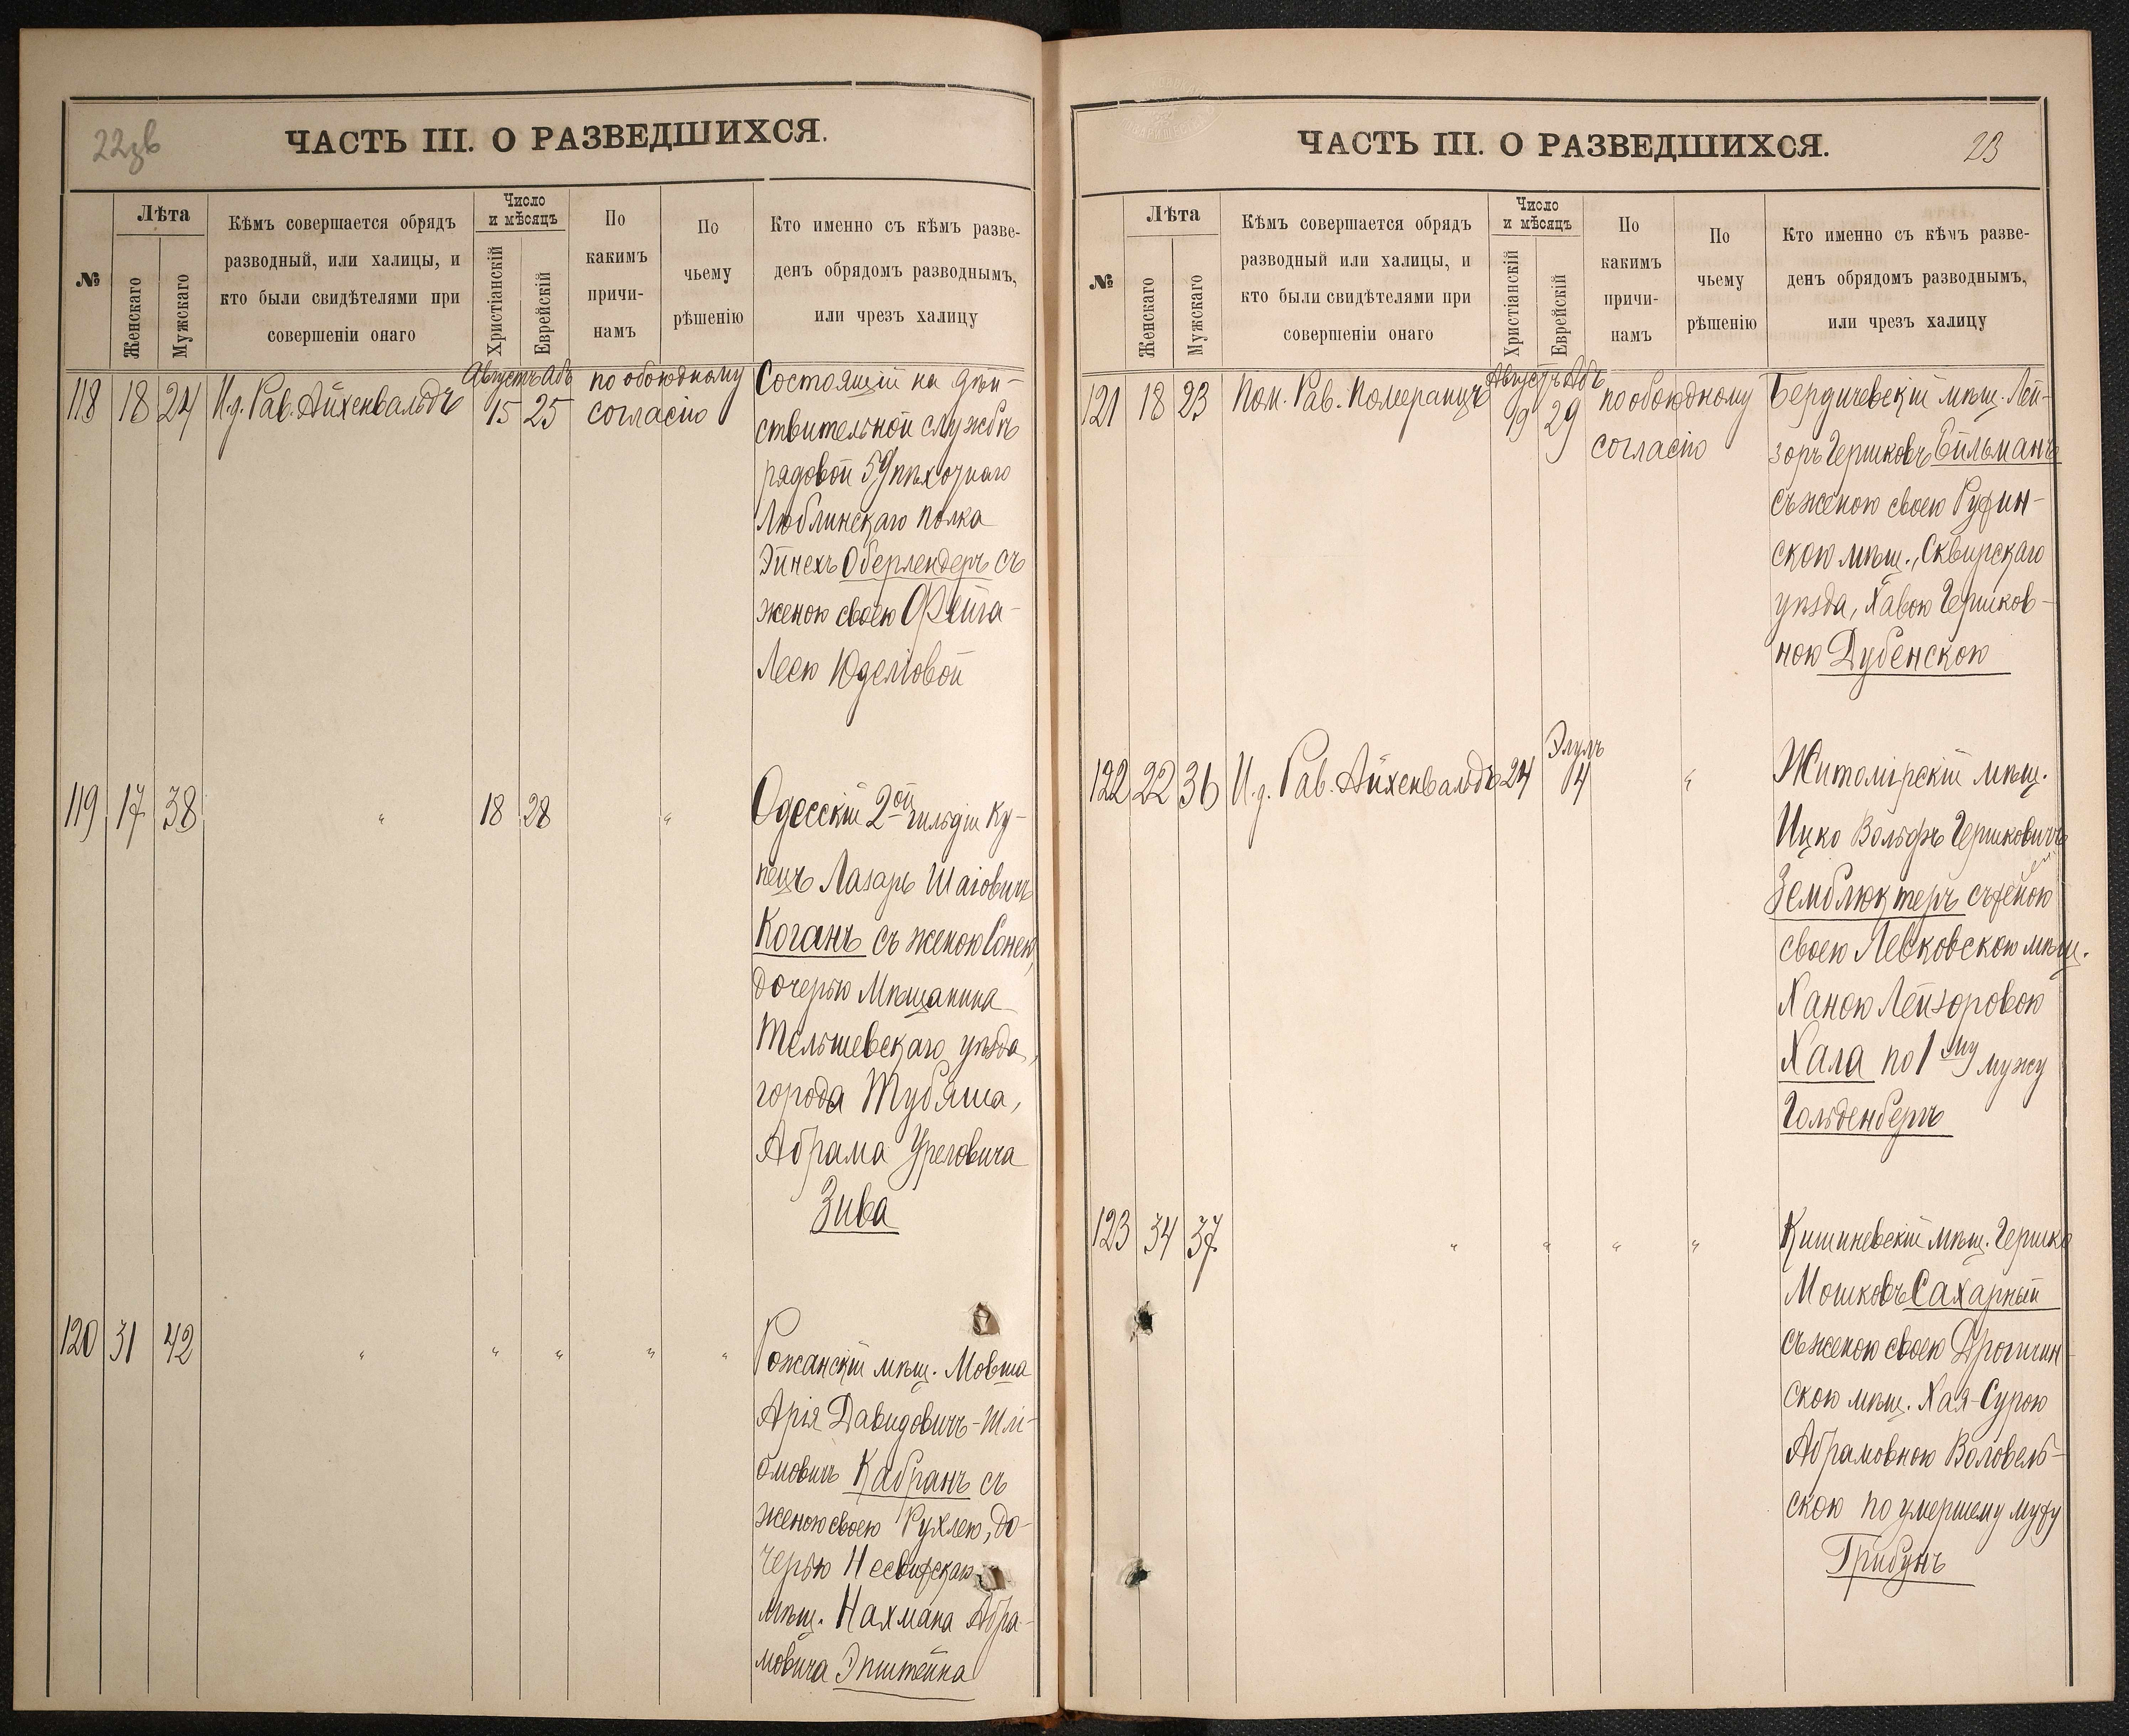 22зв
ЧАСТЬ III. О РАЗВЕДШИХСЯ.
№
Лѣта
Женскаго
Мужскаго
Кѣмъ совершается обрядъ
разводный, или халицы, и
кто были свидѣтелями при
совершеніи онаго
Число
и мѣсяцъ
Христіанскій
Еврейскій
По
какимъ
причи-
намъ
По
чьему
рѣшенію
Кто именно съ кѣмъ разве-
денъ обрядомъ разводнымъ,
или чрезъ халицу
Августъ Абъ
118 18 24 И.д. Рав. Айхенвальдъ 15 25 по обоюдному согласію
Состоящій на дѣй-
ствительной службѣ
рядовой 59 пѣхотнаго
Люблинскаго полка
Эйнехъ Оберлендеръ съ
женою своею Фейга-
Леею Юделіовой
119 17 38 " 18 28 "
Одесскій 2ой гильдіи ку-
пецъ Лазарь Шаіовичъ
Коганъ съ женою Сонею,
дочерью Мѣщанина
Тельшевскаго уѣзда,
города Тубяша,
Абрама Уреловича
Зива
120 31 42 " " " " "
Рожанскій мѣщ. Мовша
Арія Давидовичъ-Шлі-
омовичъ Кабранъ съ
женою своею Рухлею, до-
черью Несвижскаго
мѣщ. Нахмана Абра-
мовича Эпштейна
ЧАСТЬ III. О РАЗВЕДШИХСЯ.
23
№
Лѣта
Женскаго
Мужскаго
Кѣмъ совершается обрядъ
разводный или халицы, и
кто были свидѣтелями при
совершеніи онаго
Число
и мѣсяцъ
Христіанскій
Еврейскій
По
какимъ
причи-
намъ
По
чьему
рѣшенію
Кто именно съ кѣмъ разве-
денъ обрядомъ разводнымъ,
или чрезъ халицу
Августъ Абъ
121 18 23 Пом. Рав. Померанцъ 19 29 по обоюдному согласію
Бердичевскій мѣщ. Лей-
зоръ Гершковъ Бильманъ
съ женою своею Ружин-
скою мѣщ., Сквирскаго
уѣзда, Хавою Гершков-
ною Дубенскою
Элулъ
122 22 36 И.д. Рав. Айхенвальдъ 24 4 "
Житомірскій мѣщ.
Ицко Вольфъ Гершковичъ
Земблюктеръ съ женою
своею Левковскою мѣщ.
Ханою Лейзоровою
Хала по 1му мужу
Гольденбергъ
123 34 37 " " " "
Кишиневскій мѣщ. Гершко
Мошковъ Сахарный
съ женою своею Дрогичин-
скою мѣщ. Хая-Сурою
Абрамовною Воловель-
скою по умершему мужу
Трибунъ